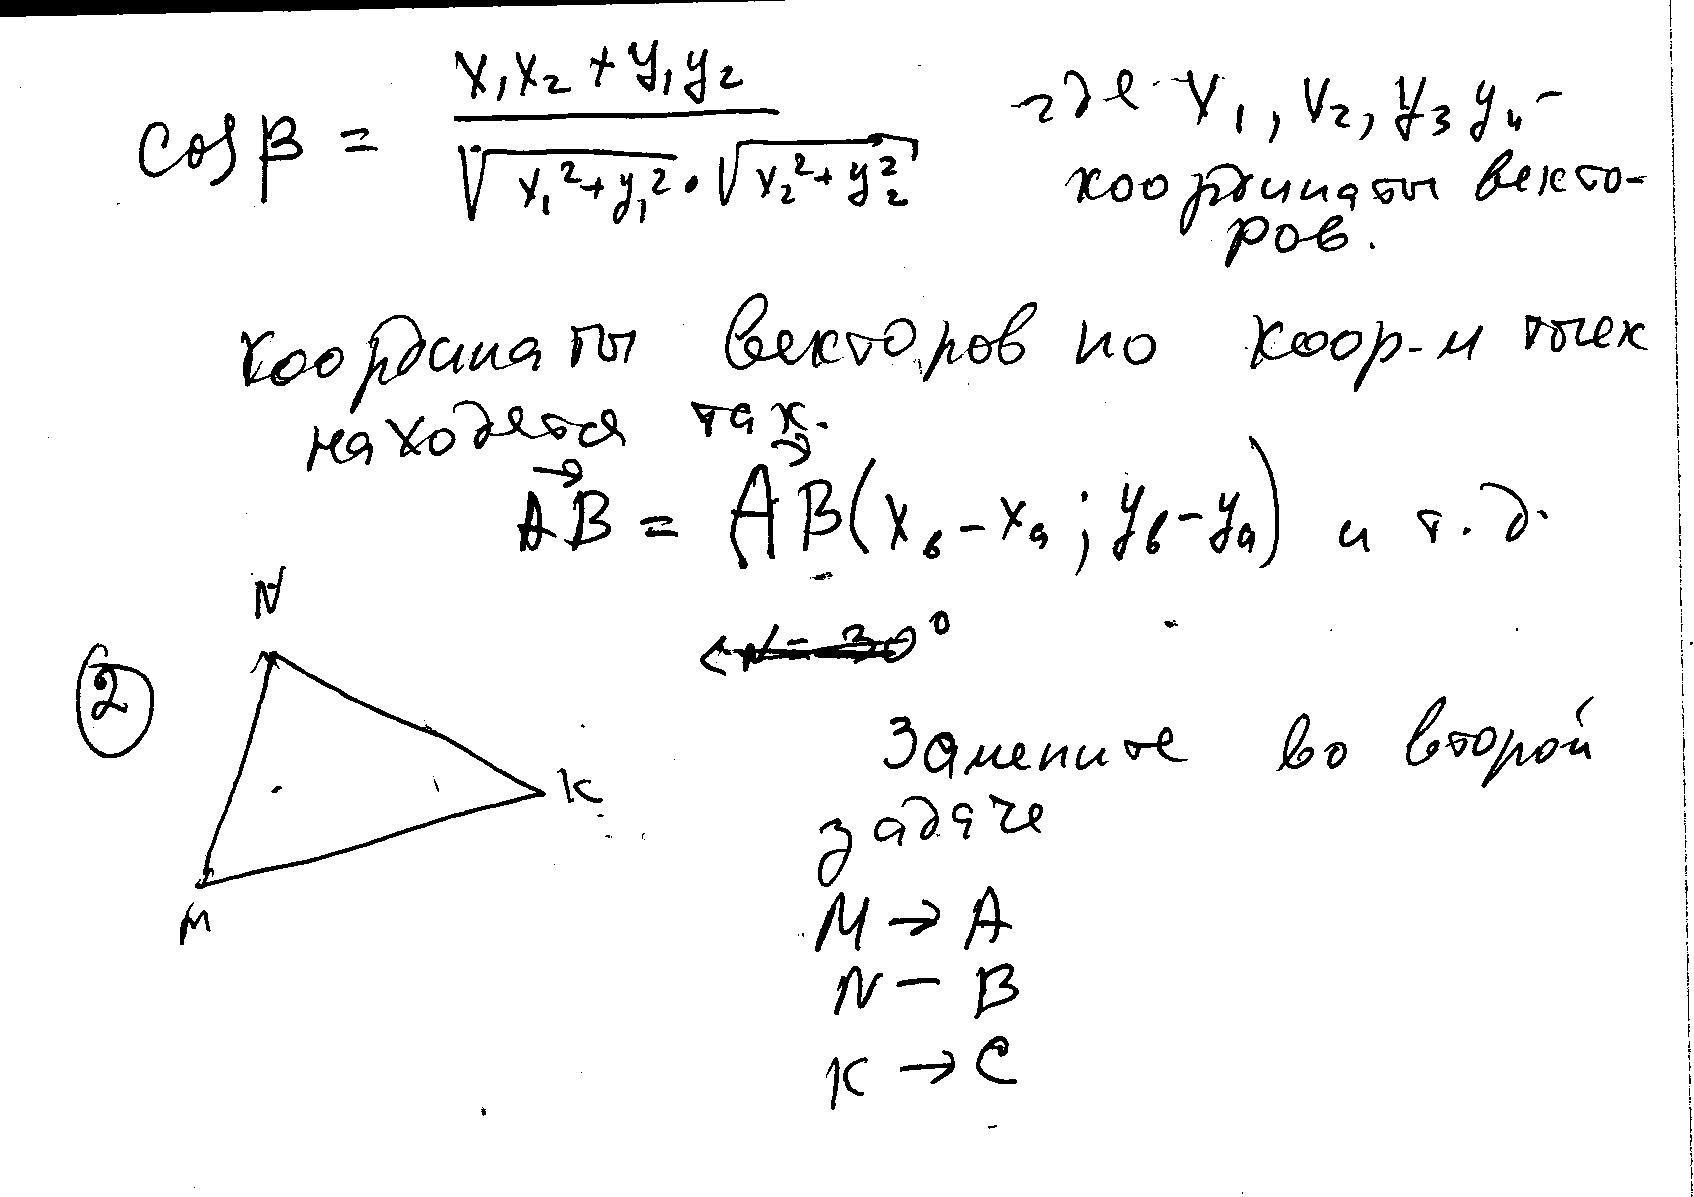 cos β = (x₁x₂ + y₁y₂) / (√(x₁² + y₁²) · √(x₂² + y₂²))
где x₁, x₂, y₃ y₄ -
координаты векто-
ров.
координаты векторов по коор-м точек
находятся так.
AB = AB(xв - xа ; yв - yа) и т.д.
N
<N = 30°
2
K
M
Замените во второй
задаче
M → A
N — B
K → C